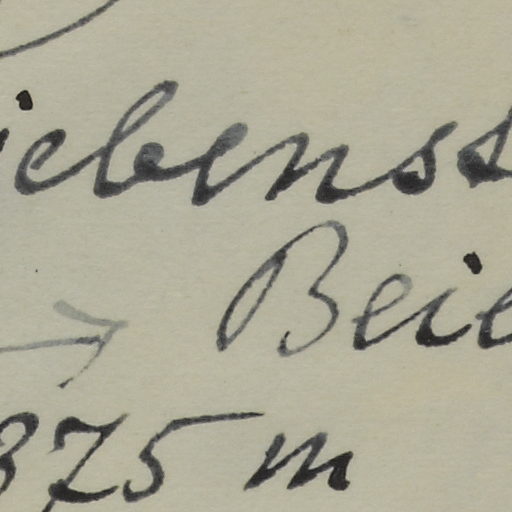 iebenss
→ Beie
375 m